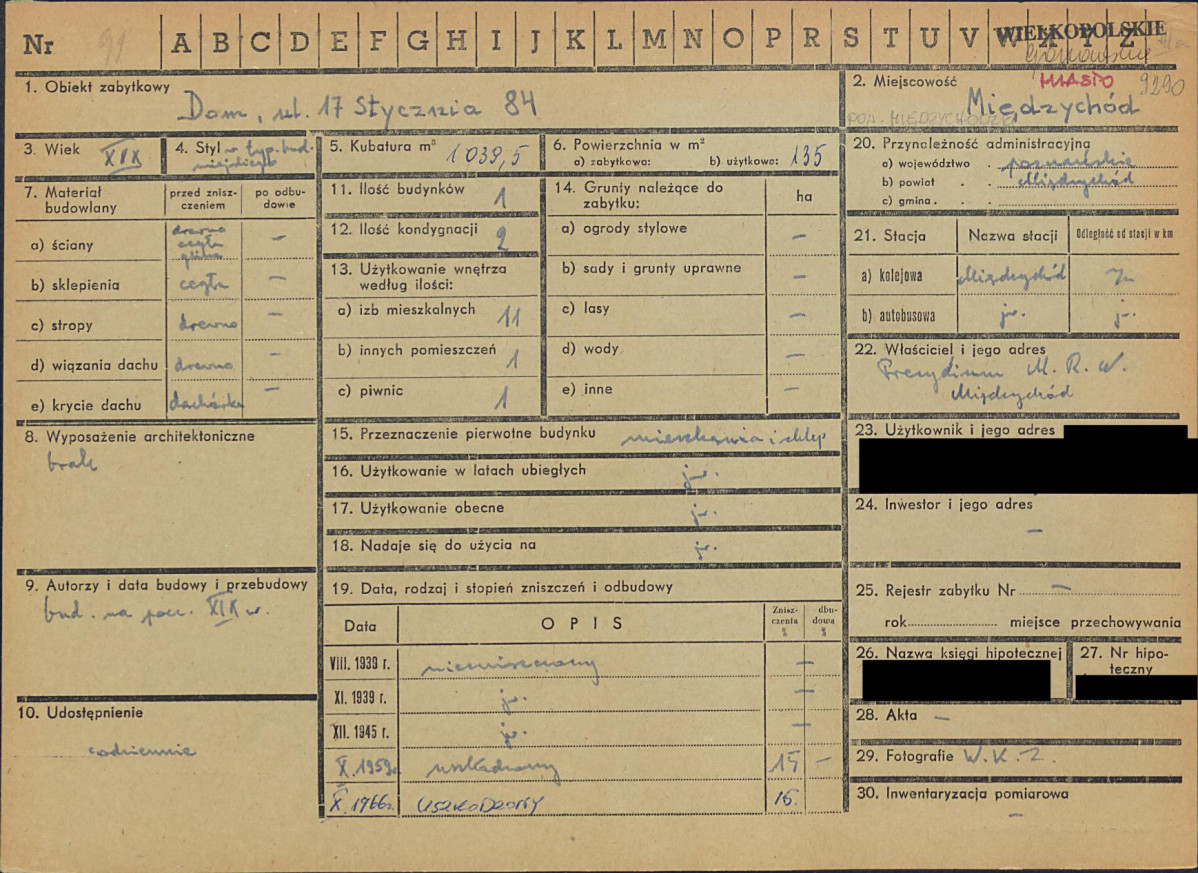 Nr 91 A B C D E F G H I J K L M N O P R S T U V W X Y Z
WIELKOPOLSKIE
Gorzowskie
1. Obiekt zabytkowy
Dom, ul. 17 Stycznia 84
2. Miejscowość
MIASTO 9290
Międzychód
POW. MIĘDZYCHODZKI
3. Wiek XIX
4. Styl w typ. bud. miejskiego
5. Kubatura m³ 1039,5
6. Powierzchnia w m²
a) zabytkowa: b) użytkowa: 135
7. Materiał budowlany
przed zniszczeniem
po odbudowie
a) ściany drewno cegła glina –
b) sklepienia cegła –
c) stropy drewno –
d) wiązania dachu drewno –
e) krycie dachu dachówka –
8. Wyposażenie architektoniczne
brak
9. Autorzy i data budowy i przebudowy
bud. na pocz. XIX w.
10. Udostępnienie
codziennie
11. Ilość budynków 1
12. Ilość kondygnacji 2
13. Użytkowanie wnętrza według ilości:
a) izb mieszkalnych 11
b) innych pomieszczeń 1
c) piwnic 1
14. Grunty należące do zabytku: ha
a) ogrody stylowe –
b) sady i grunty uprawne –
c) lasy –
d) wody –
e) inne –
15. Przeznaczenie pierwotne budynku mieszkania i sklep
16. Użytkowanie w latach ubiegłych jw.
17. Użytkowanie obecne jw.
18. Nadaje się do użycia na jw.
19. Data, rodzaj i stopień zniszczeń i odbudowy
Data OPIS Zniszczenia % dbudowa %
VIII. 1939 r. niezniszczony –
XI. 1939 r. jw. –
XII. 1945 r. jw. –
X. 1959r. uszkodzony 15 –
X. 1966r. USZKODZONY 16.
20. Przynależność administracyjna
a) województwo poznańskie
b) powiat Międzychód
c) gmina
21. Stacja Nazwa stacji Odległość od stacji w km
a) kolejowa Międzychód
b) autobusowa jw. j.
22. Właściciel i jego adres
Prezydium M. R. N.
Międzychód
23. Użytkownik i jego adres
24. Inwestor i jego adres
–
25. Rejestr zabytku Nr –
rok miejsce przechowywania
26. Nazwa księgi hipotecznej
27. Nr hipoteczny
28. Akta –
29. Fotografie W. K. Z.
30. Inwentaryzacja pomiarowa
–